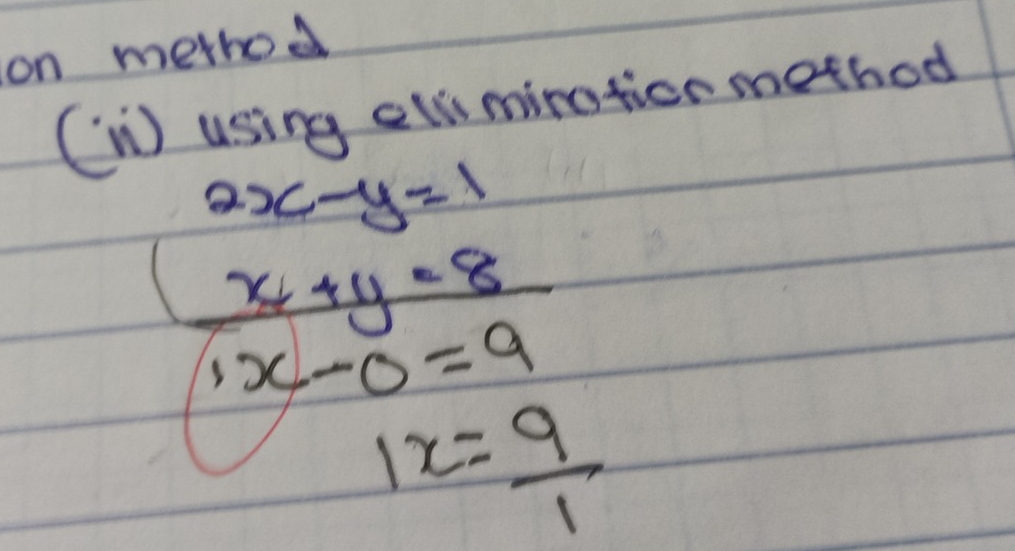 on method
(ii) using ellimination method
2x-y=1
x+y=8
1x-0=9
1x=9/1